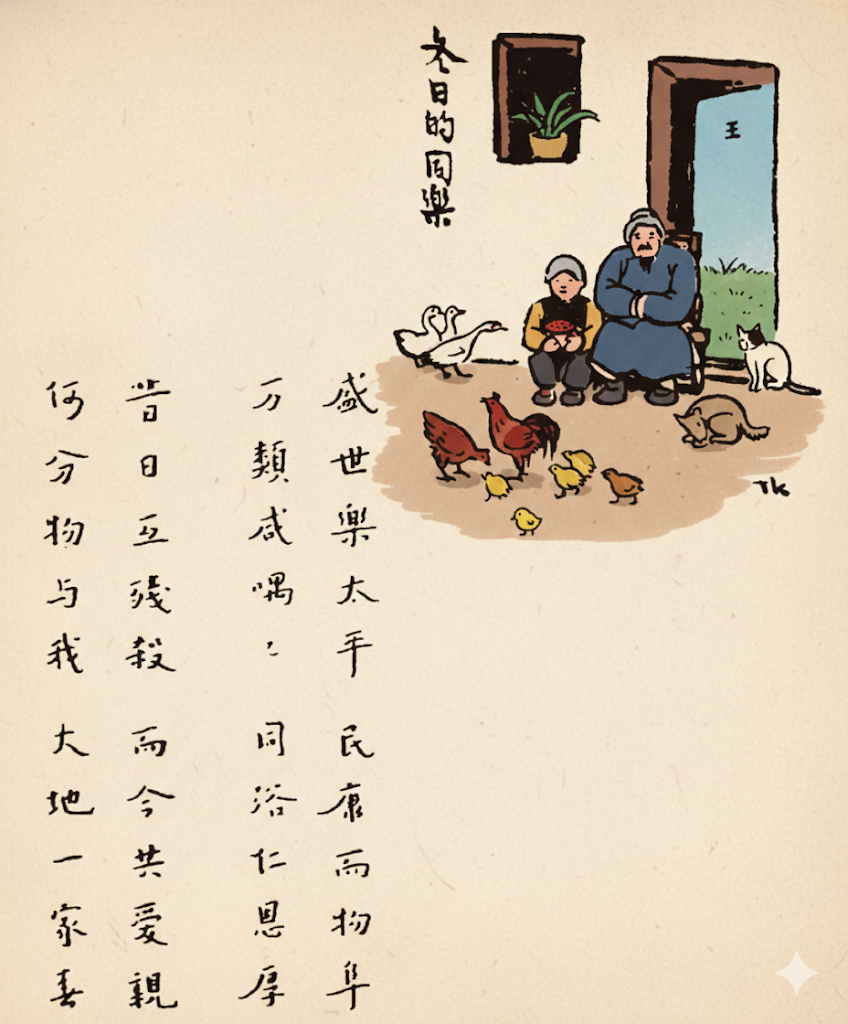 冬日的同樂
王
TK
盛世樂太平 民康而物阜
万類咸喁〻 同浴仁恩厚
昔日互殘殺 而今共愛親
何分物与我 大地一家春